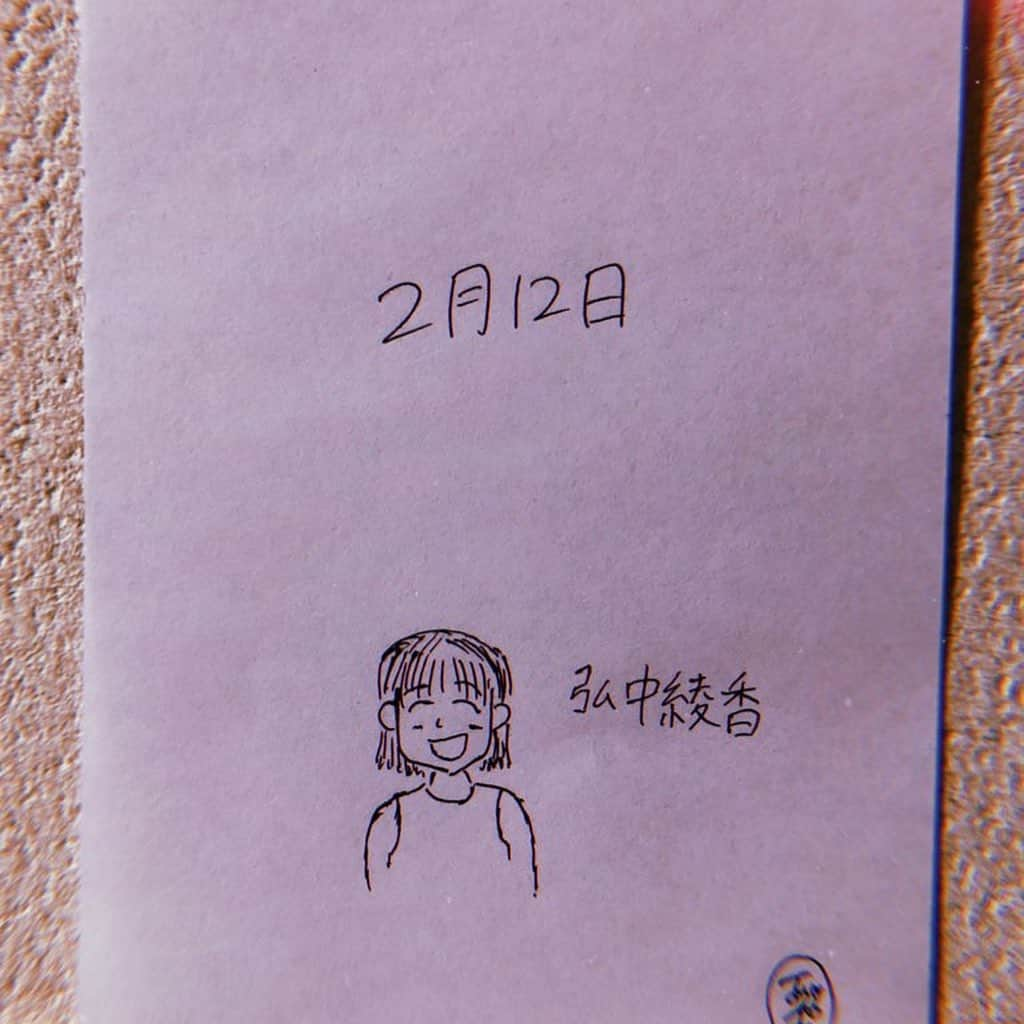 2月12日
弘中綾香